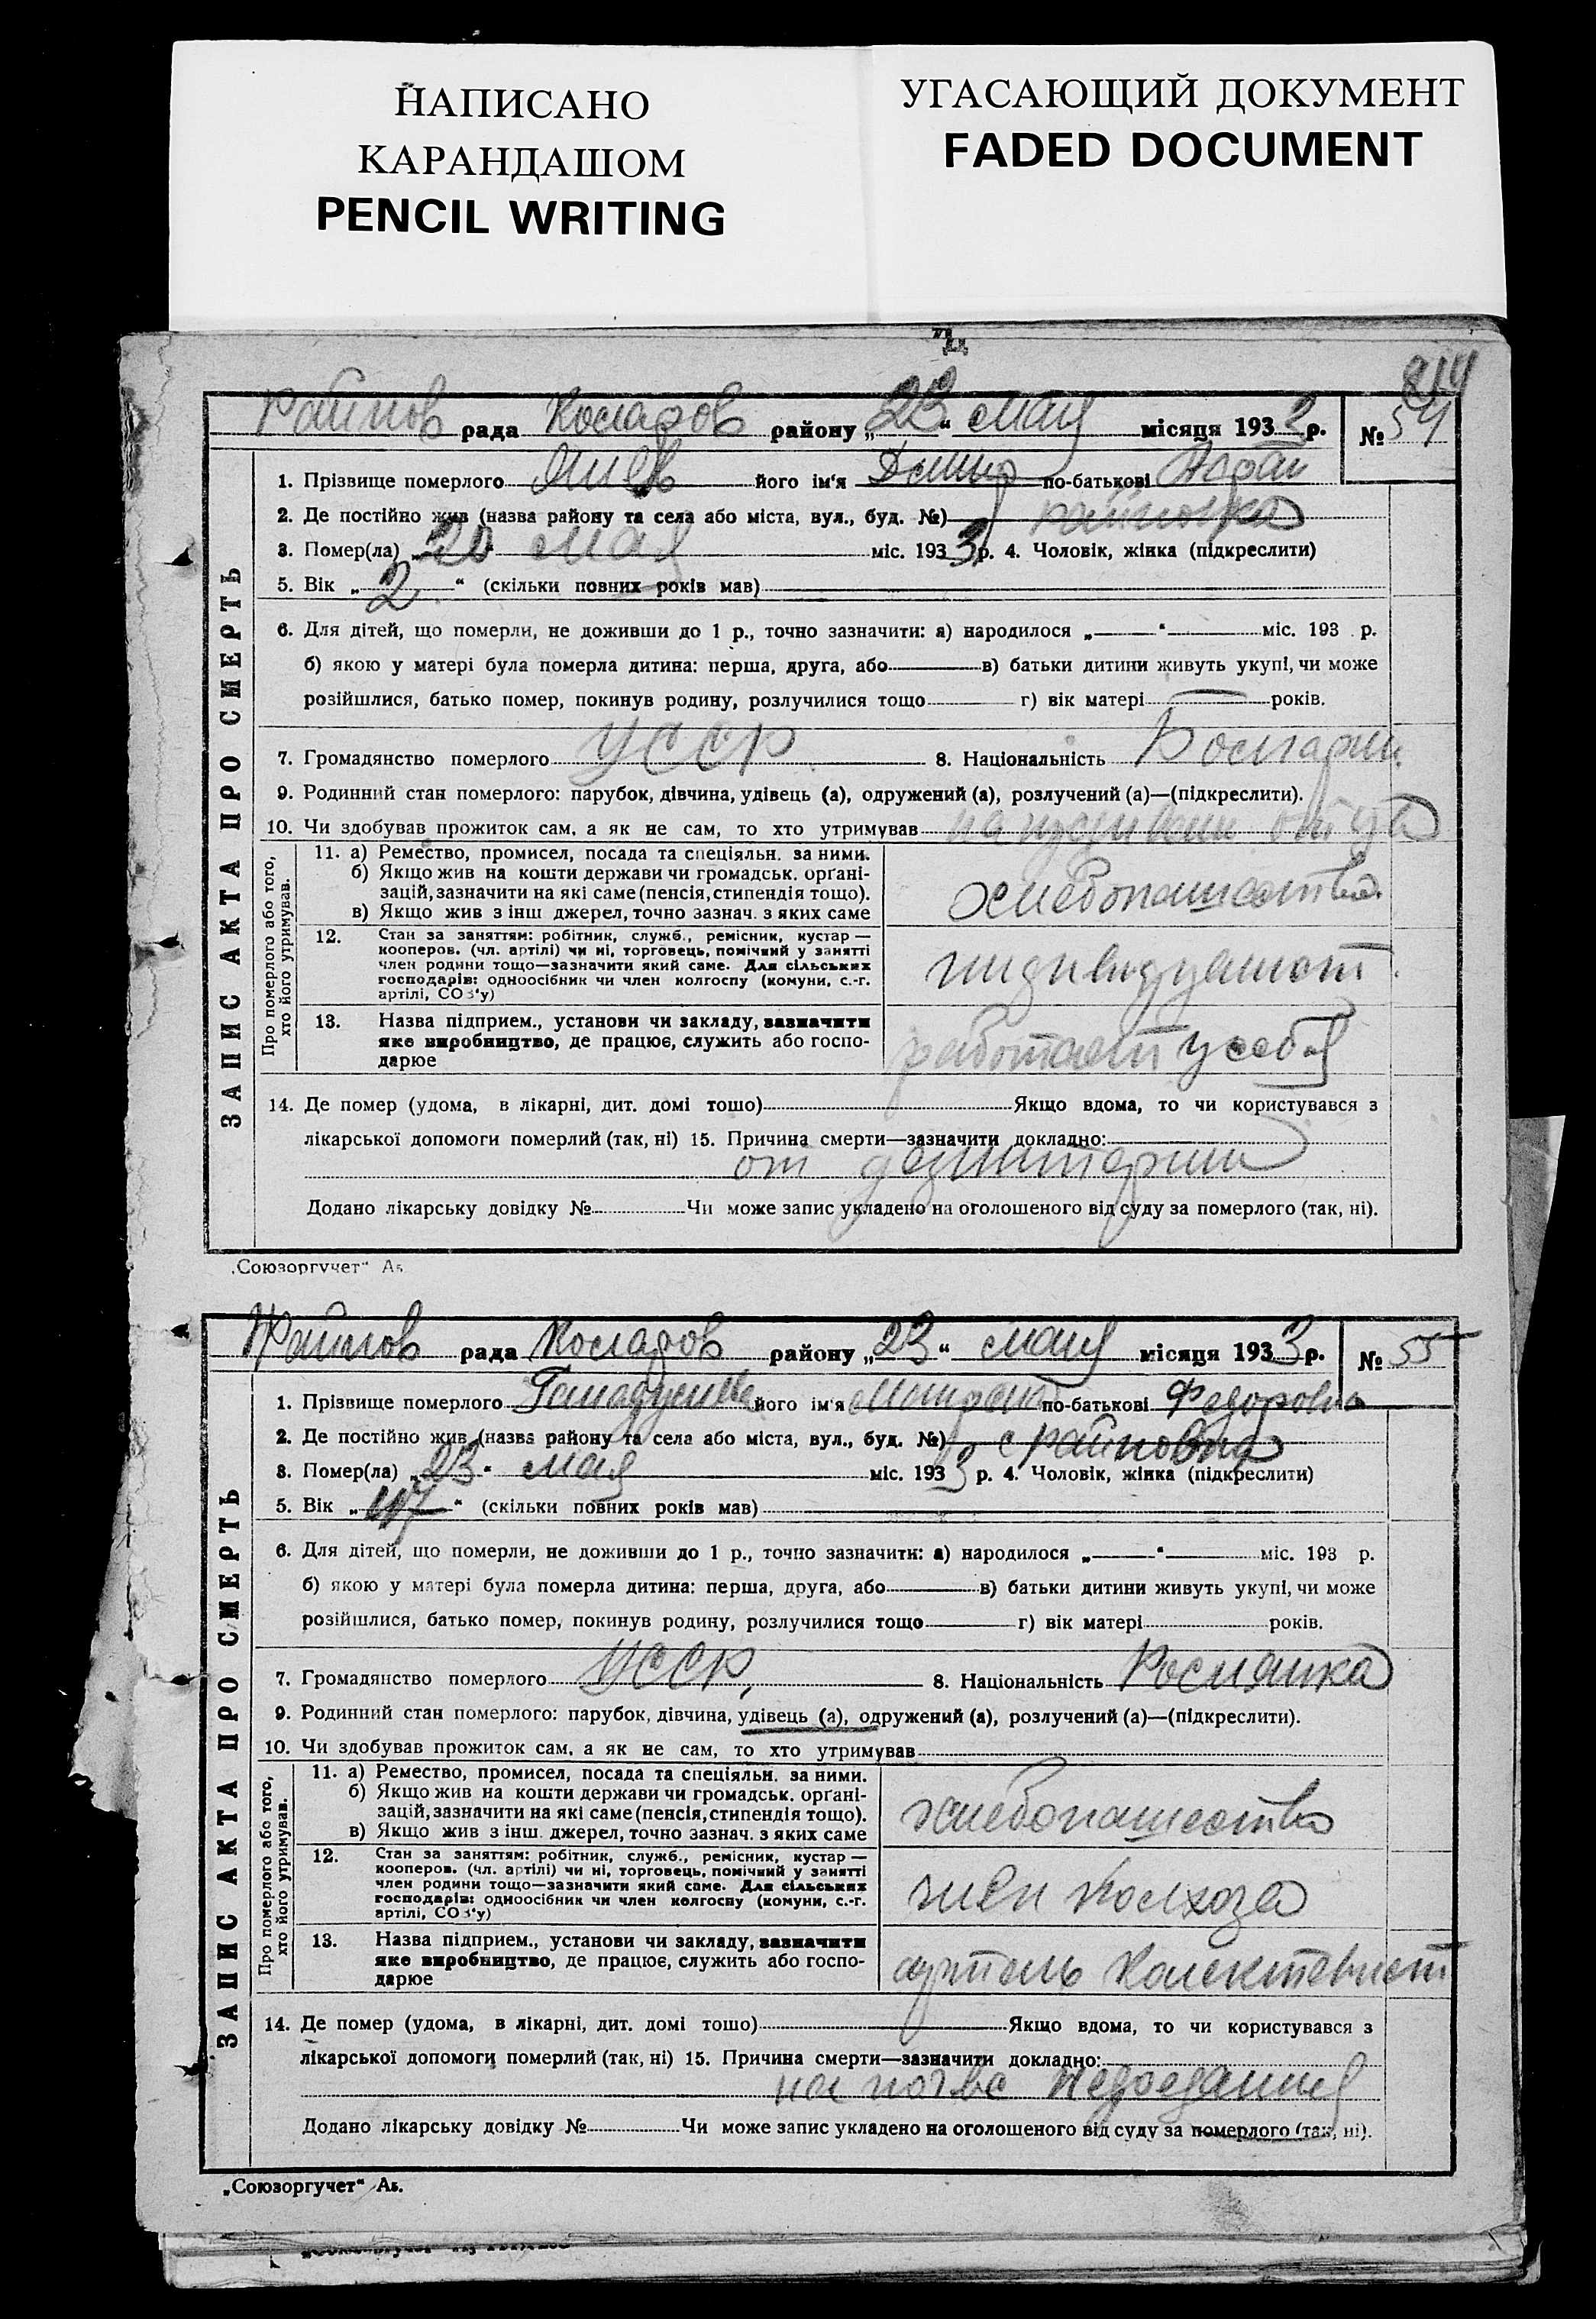 НАПИСАНО
КАРАНДАШОМ
PENCIL WRITING
УГАСАЮЩИЙ ДОКУМЕНТ
FADED DOCUMENT
рада Коларов району „23“ мая місяця 1933 р. № 54
ЗАПИС АКТА ПРО СМЕРТЬ
1. Прізвище померлого його ім'я по-батькові
2. Де постійно жив (назва району та села або міста, вул., буд. №) Райновка
3. Помер(ла) „20 мая міс. 1933 р. 4. Чоловік, жінка (підкреслити)
5. Вік „2“ (скільки повних років мав)
6. Для дітей, що померли, не доживши до 1 р., точно зазначити: а) народилося „—“ міс. 193 р.
б) якою у матері була померла дитина: перша, друга, або в) батьки дитини живуть укупі, чи може
розійшлися, батько помер, покинув родину, розлучилися тощо г) вік матері років.
7. Громадянство померлого УССР 8. Національність Болгарин
9. Родинний стан померлого: парубок, дівчина, удівець (а), одружений (а), розлучений (а)—(підкреслити).
10. Чи здобував прожиток сам, а як не сам, то хто утримував на иждивении отца
Про померлого або того, хто його утримував.
11. а) Ремество, промисел, посада та спеціяльн. за ними.
б) Якщо жив на кошти держави чи громадськ. орґані-
зацій, зазначити на які саме (пенсія, стипендія тощо).
в) Якщо жив з інш джерел, точно зазнач. з яких саме
хлебопашество
12. Стан за заняттям: робітник, служб., ремісник, кустар —
кооперов. (чл. артілі) чи ні, торговець, помічний у занятті
член родини тощо—зазначити який саме. Для сільських
господарів: одноосібник чи член колгоспу (комуни, с.-г.
артілі, СОЗ'у)
индивидуалист
13. Назва підприєм., установи чи закладу, зазначити
яке виробництво, де працює, служить або госпо-
дарює
работает у себя
14. Де помер (удома, в лікарні, дит. домі тощо) Якщо вдома, то чи користувався з
лікарської допомоги померлий (так, ні) 15. Причина смерти—зазначити докладно:
от дезинтерии
Додано лікарську довідку № Чи може запис укладено на оголошеного від суду за померлого (так, ні).
„Союзоргучет“
рада Коларов району „23“ мая місяця 1933 р. № 55
ЗАПИС АКТА ПРО СМЕРТЬ
1. Прізвище померлого його ім'я по-батькові Федоровна
2. Де постійно жив (назва району та села або міста, вул., буд. №) с Райновка
3. Помер(ла) „23“ мая міс. 1933 р. 4. Чоловік, жінка (підкреслити)
5. Вік „ “ (скільки повних років мав)
6. Для дітей, що померли, не доживши до 1 р., точно зазначити: а) народилося „—“ міс. 193 р.
б) якою у матері була померла дитина: перша, друга, або в) батьки дитини живуть укупі, чи може
розійшлися, батько помер, покинув родину, розлучилися тощо г) вік матері років.
7. Громадянство померлого УССР, 8. Національність
9. Родинний стан померлого: парубок, дівчина, удівець (а), одружений (а), розлучений (а)—(підкреслити).
10. Чи здобував прожиток сам, а як не сам, то хто утримував
Про померлого або того, хто його утримував.
11. а) Ремество, промисел, посада та спеціяльн. за ними.
б) Якщо жив на кошти держави чи громадськ. орґані-
зацій, зазначити на які саме (пенсія, стипендія тощо).
в) Якщо жив з інш. джерел, точно зазнач. з яких саме
хлебопашество
12. Стан за заняттям: робітник, служб., ремісник, кустар —
кооперов. (чл. артілі) чи ні, торговець, помічний у занятті
член родини тощо—зазначити який саме. Для сільських
господарів: одноосібник чи член колгоспу (комуни, с.-г.
артілі, СОЗ'у)
член колхоза
13. Назва підприєм., установи чи закладу, зазначити
яке виробництво, де працює, служить або госпо-
дарює
артель Колективист
14. Де помер (удома, в лікарні, дит. домі тощо) Якщо вдома, то чи користувався з
лікарської допомоги померлий (так, ні) 15. Причина смерти—зазначити докладно:
на почве недоедания
Додано лікарську довідку № Чи може запис укладено на оголошеного від суду за померлого (так, ні).
„Союзоргучет“